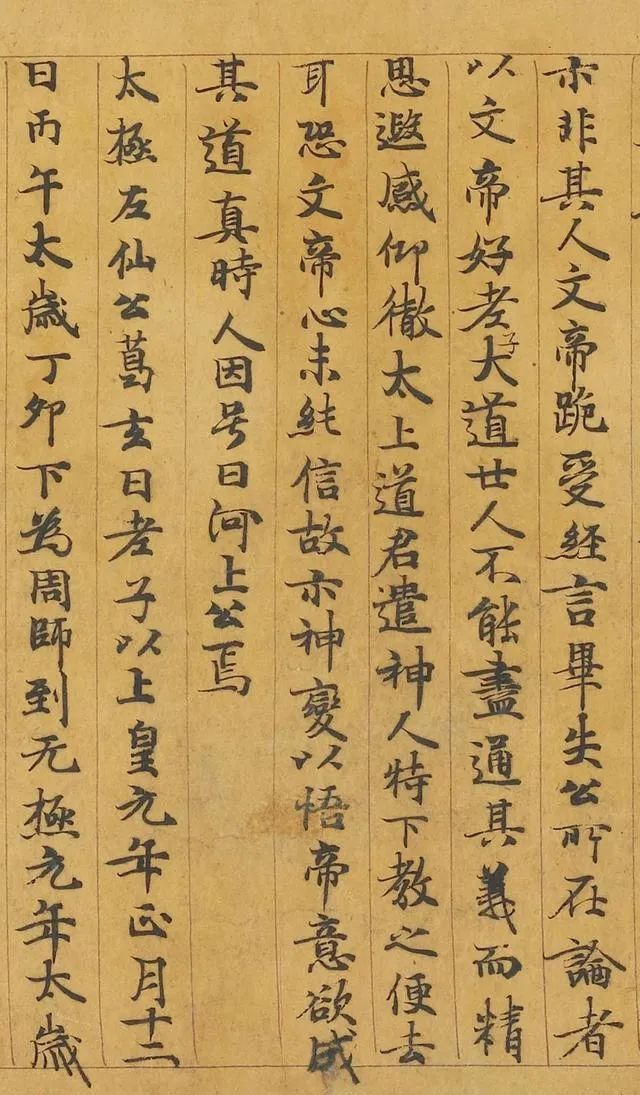 示非其人文帝跪受經言畢失公所在論者
以文帝好老子大道廿人不能盡通其義而精
思遐感仰徹太上道君遣神人特下教之便去
耳恐文帝心未純信故示神變以悟帝意欲成
其道真時人因号曰河上公焉
太極左仙公葛玄曰老子以上皇元年正月十二
日丙午太歲丁卯下為周師到无極元年太歲